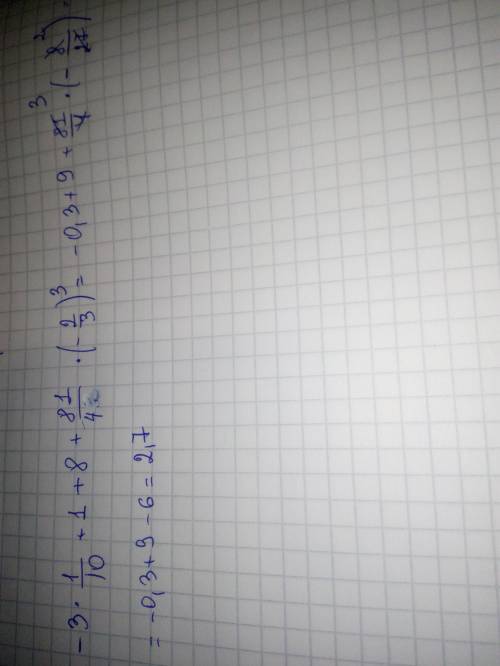 -3 · 1/10 + 1 + 8 + 81/4 · (-2/3)^3 = -0,3 + 9 + 81^3/4 · (-8^2/27) =
= -0,3 + 9 - 6 = 2,7